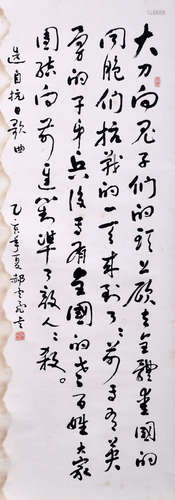 大刀向鬼子们的头上砍去全體爱国的
同胞们抗战的一天来到了前面有英
勇的子弟兵後面有全国的老百姓大家
團结向前進看準了敵人殺。
选自抗日歌曲
乙亥年夏郝